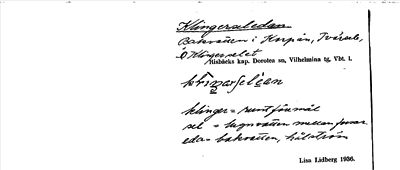 Klingerseledan
Bakvatten i Korpån, Tvärsele,
ö Klingerselet
Risbäcks kap. Dorotea sn, Vilhelmina tg, Vbt. l.
klinger = runt föremål
sel = lugnvatten mellan forsar
eda = bakvatten, hålström
Lisa Lidberg 1936.